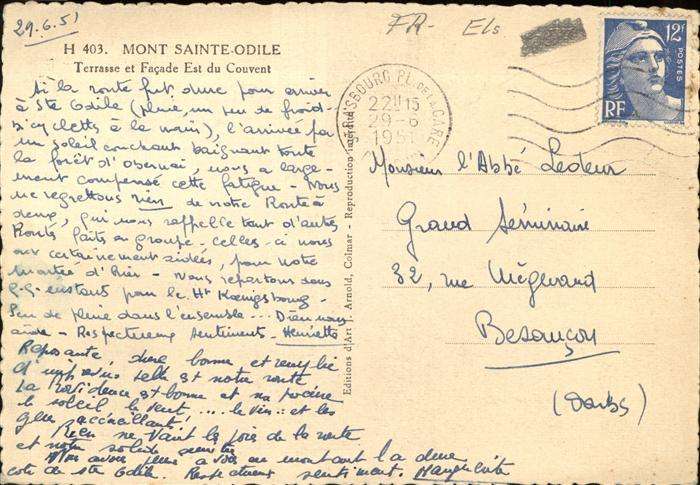 29.6.51
FR- Els
H 403. MONT SAINTE-ODILE
Terrasse et Façade Est du Couvent
12F
POSTES
RF
STRASBOURG PL. DE LA GARE
22H15
29-6
1951
Si la route fut dure pour arriver
à Ste Odile (pluie, un peu de froid-
bicyclettes à la main), l'arrivée par
un soleil couchant baignant toute
la forêt d'Obernai, nous a large-
ment compensé cette fatigue - Nous
ne regrettons rien de notre Route à
deux, qui nous rappelle tant d'autres
Routes faites en groupe - celles-ci nous
ont certainement aidées, pour notre
montée d'hier - Nous repartons dans
q.q. instants pour le Ht Kœnigsbourg -
Peu de pluie dans l'ensemble ... Dieu nous
aide - Respectueux sentiments - Henriette
Reposante, dure bonne et remplie
d'imprévus telle est notre route
La résidence est bonne et
le soleil le vent .... le vin .. et les
gens accueillants!
Rien ne vaut les joies de la route
et notre solide
avoir à vous en montant la dure
cote de Ste Odile. Respectueux sentiments. Marguerite
Editions d'Art J. Arnold, Colmar - Reproduction interdite
Monsieur l'Abbé Ledeur
Grand Séminaire
32, rue Mégevand
Besançon
(Doubs)